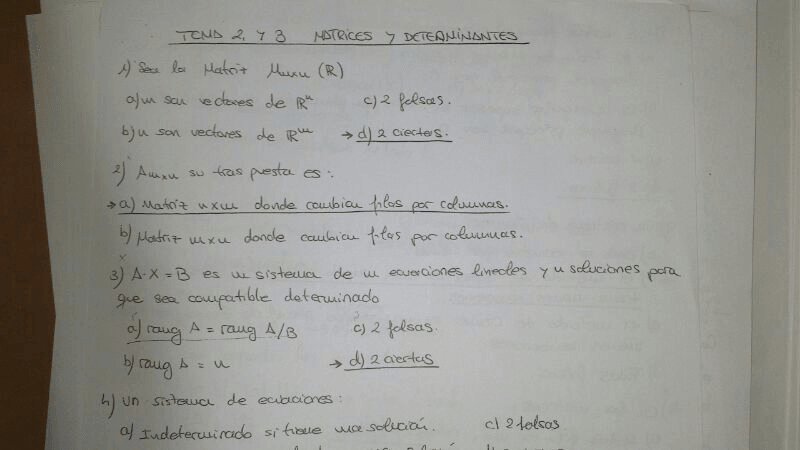 TEMA 2, Y 3 MATRICES Y DETERMINANTES
1) Sea la Matriz Mmxn (R)
a) m son vectores de Rⁿ c) 2 falsas.
b) n son vectores de Rᵐ → d) 2 ciertas.
2) Amxn su traspuesta es:
→ a) Matriz nxm donde cambian filas por columnas.
b) Matriz mxn donde cambian filas por columnas.
3) A·X = B es un sistema de m ecuaciones lineales y n soluciones para
que sea compatible determinado
a) rang A = rang A/B c) 2 falsas.
b) rang A = n → d) 2 ciertas
4) Un sistema de ecuaciones:
a) Indeterminado si tiene una solución. c) 2 falsas.